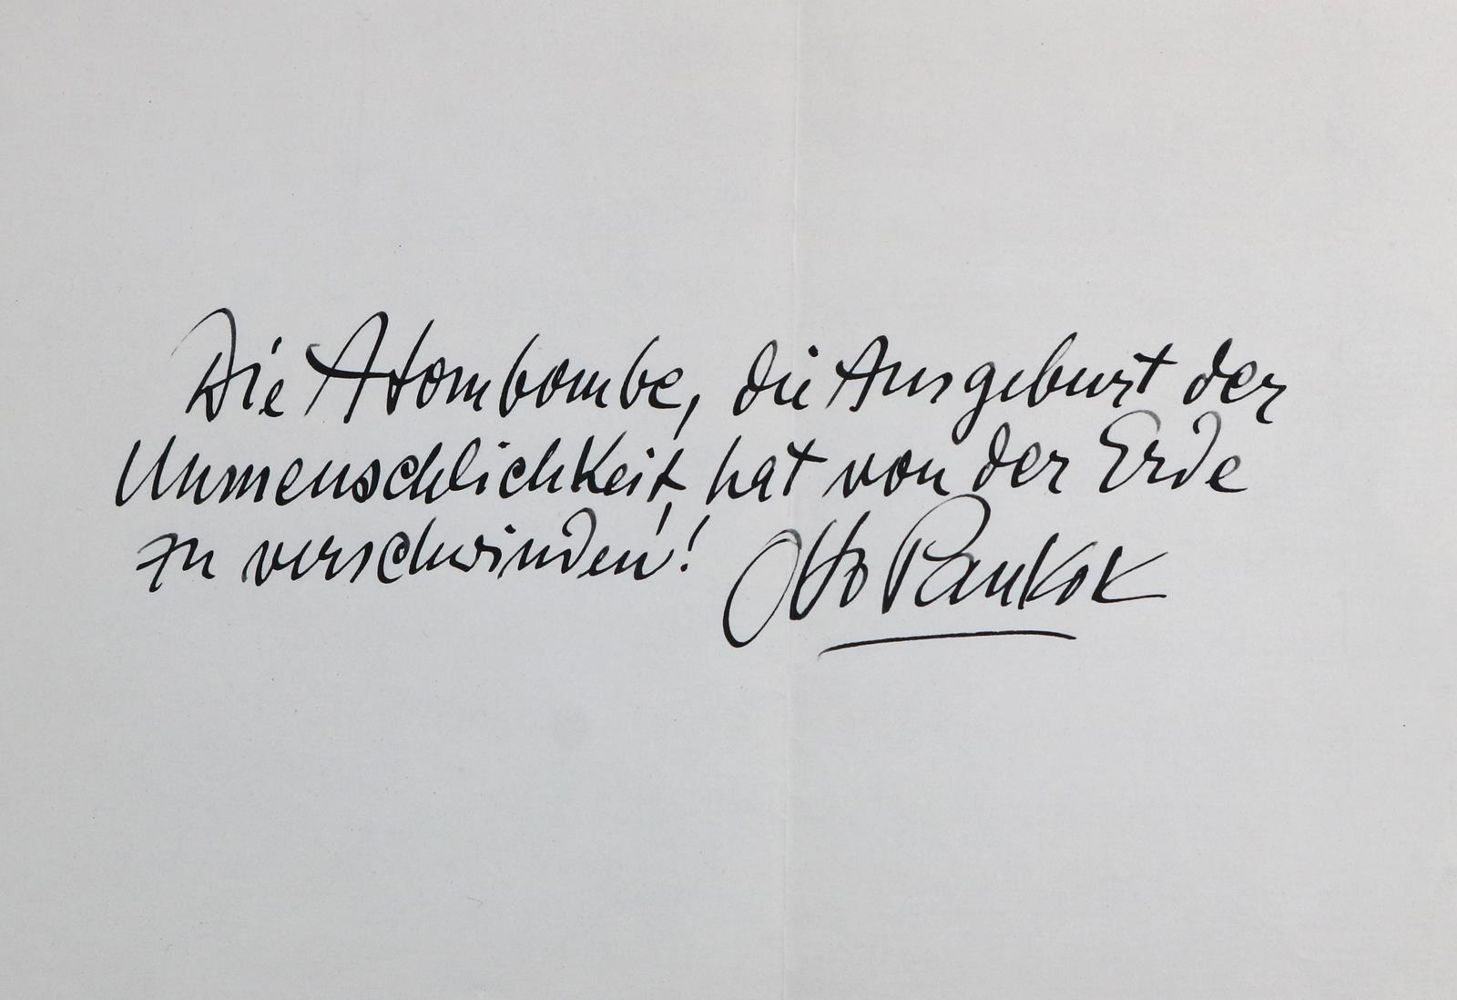 Die Atombombe, die Ausgeburt der
Unmenschlichkeit, hat von der Erde
zu verschwinden! Otto Pankok